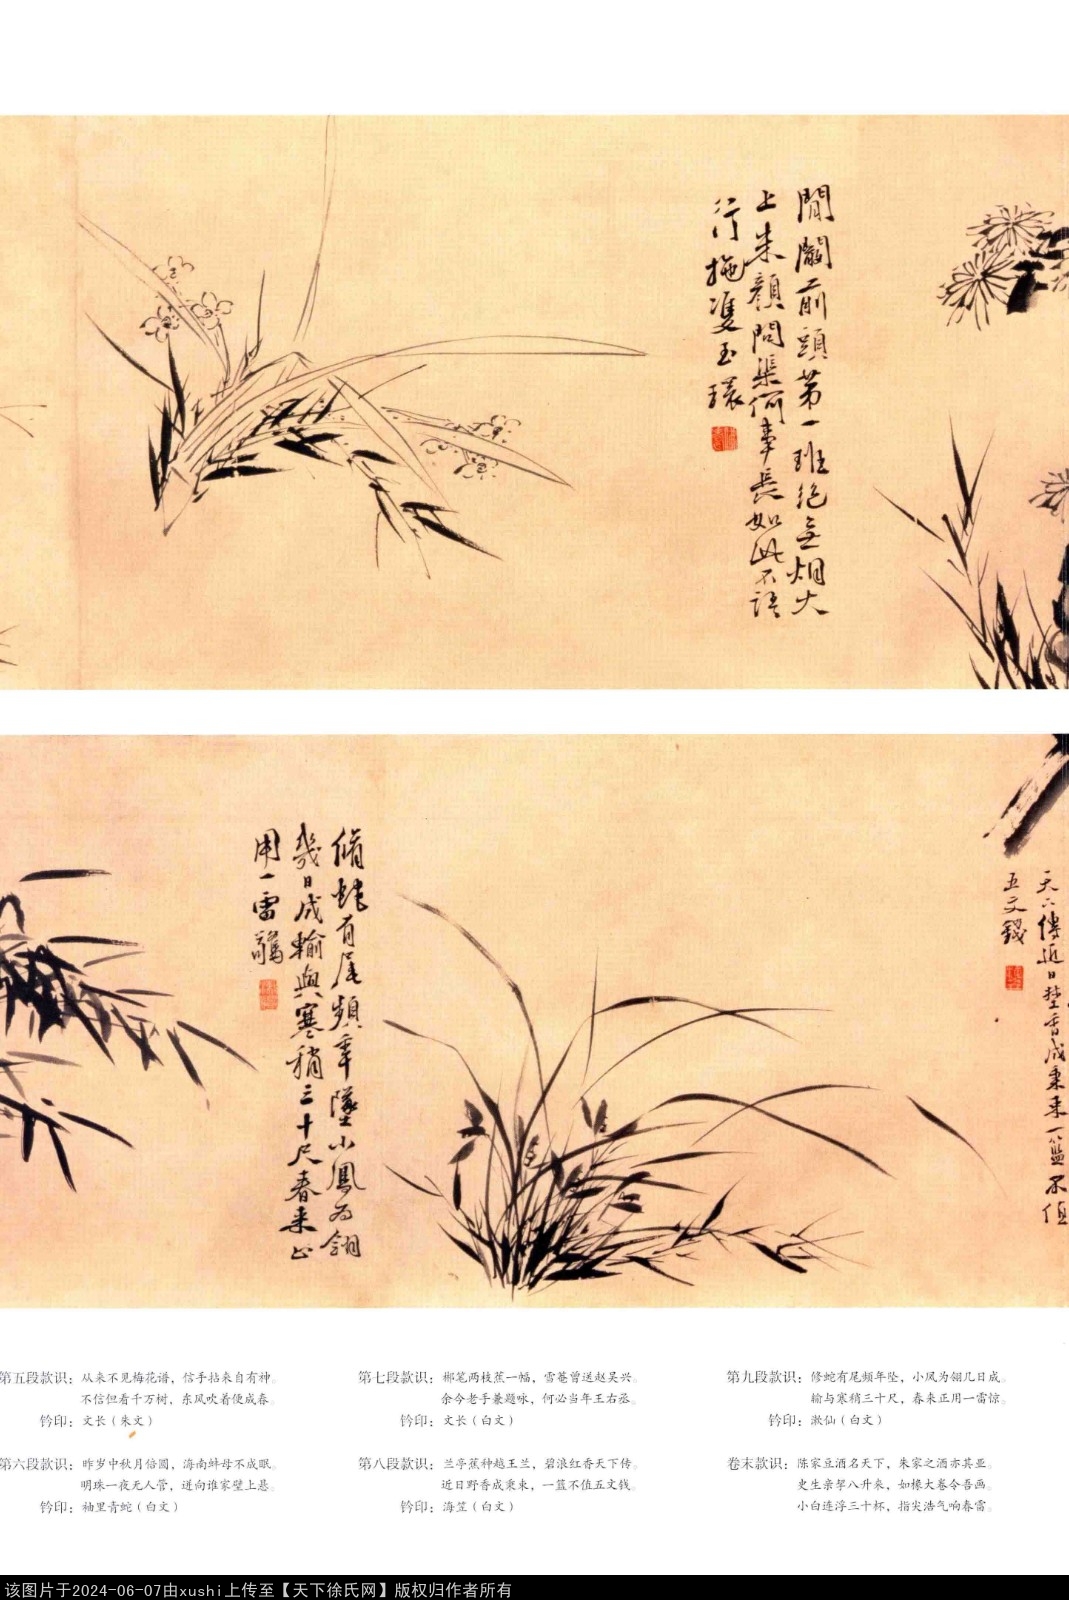 閒闢前頭第一班絕無烟火
上朱顏問渠何事長如此不語
行拖雙玉環
天下傳近日野香成秉束一籃不值
五文錢
脩蛇有尾頻年墜小鳳為翎
幾日成輸與寒稍三十尺春来正
用一雷驚
第五段款识：从来不见梅花谱，信手拈来自有神。
不信但看千万树，东风吹着便成春。
钤印：文长（朱文）
第六段款识：昨岁中秋月倍圆，海南蚌母不成眠。
明珠一夜无人管，迸向谁家壁上悬。
钤印：袖里青蛇（白文）
第七段款识：郴笔两枝蕉一幅，雪菴曾送赵吴兴。
余今老手兼题咏，何必当年王右丞。
钤印：文长（白文）
第八段款识：兰亭蕉种越王兰，碧浪红香天下传。
近日野香成秉束，一篮不值五文钱。
钤印：海笠（白文）
第九段款识：修蛇有尾频年坠，小凤为翎几日成。
输与寒稍三十尺，春来正用一雷惊。
钤印：漱仙（白文）
卷末款识：陈家豆酒名天下，朱家之酒亦其亚。
史生亲挈八升来，如椽大卷令吾画。
小白连浮三十杯，指尖浩气响春雷。
该图片于2024-06-07由xushi上传至【天下徐氏网】版权归作者所有